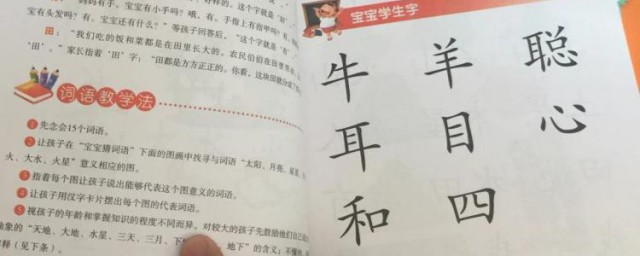 妈妈有手。宝宝有小手吗？哦，有。手指上有指甲吗？
宝有头发吗？有。宝宝还有什么？”等孩子回答后，“这个就是‘有’
田：“我们吃的饭和菜都是在田里长大的。农民伯伯在田里
‘田’。”家长指着‘田’字：“田都是方方正正的。你看，这块田就分成了
词语教学法
1 先念会15个词语。
2 让孩子在“宝宝猜词语”下面的图画中找寻与词语“太阳、月亮、星星、
火、大水、火星”意义相应的图。
3 指着每个图让孩子说出能够代表这个图意义的词语。
4 让孩子用汉字卡片摆出每个图的代表的词语。
5 视孩子的年龄和掌握知识的程度不同而异。对较大的孩子先鼓励他们自己
抽象的“天地、大地、水星、三天、三月、下 地下”的含义；不懂
解释（见下条）。
宝宝学生字
牛 羊 聪
耳 目 心
和 四